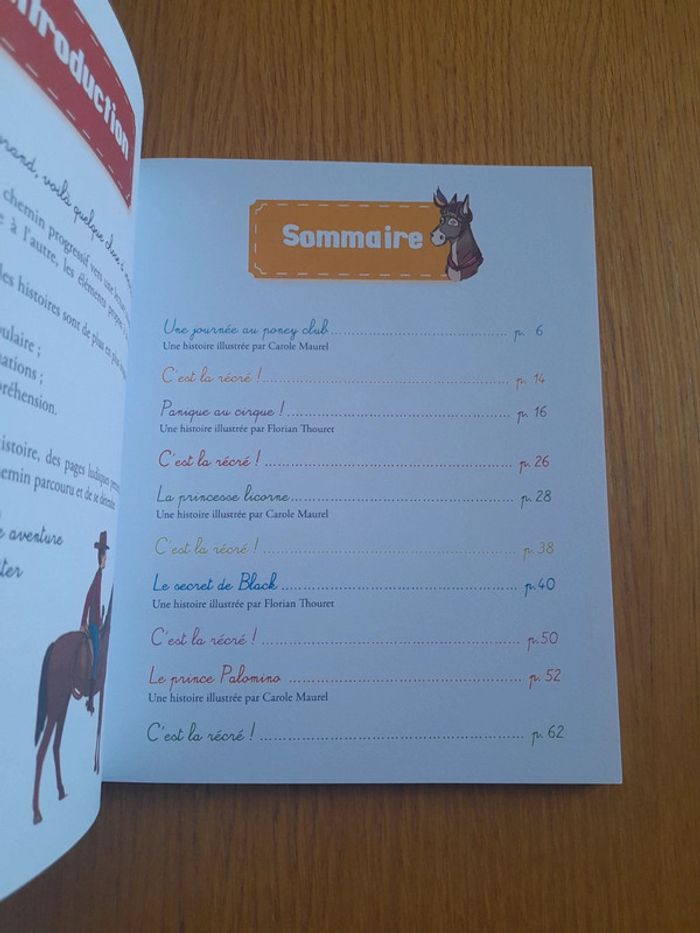 Introduction
grand, voilà quelque chose à
chemin progressif vers une
à l'autre, les éléments propres à
les histoires sont de plus en plus
histoire, des pages ludiques
chemin parcouru et de se
aventure
Sommaire
Une journée au poney club.......... p. 6
Une histoire illustrée par Carole Maurel
C'est la récré !.......... p. 14
Panique au cirque !.......... p. 16
Une histoire illustrée par Florian Thouret
C'est la récré !.......... p. 26
La princesse licorne.......... p. 28
Une histoire illustrée par Carole Maurel
C'est la récré !.......... p. 38
Le secret de Black.......... p. 40
Une histoire illustrée par Florian Thouret
C'est la récré !.......... p. 50
Le prince Palomino.......... p. 52
Une histoire illustrée par Carole Maurel
C'est la récré !.......... p. 62